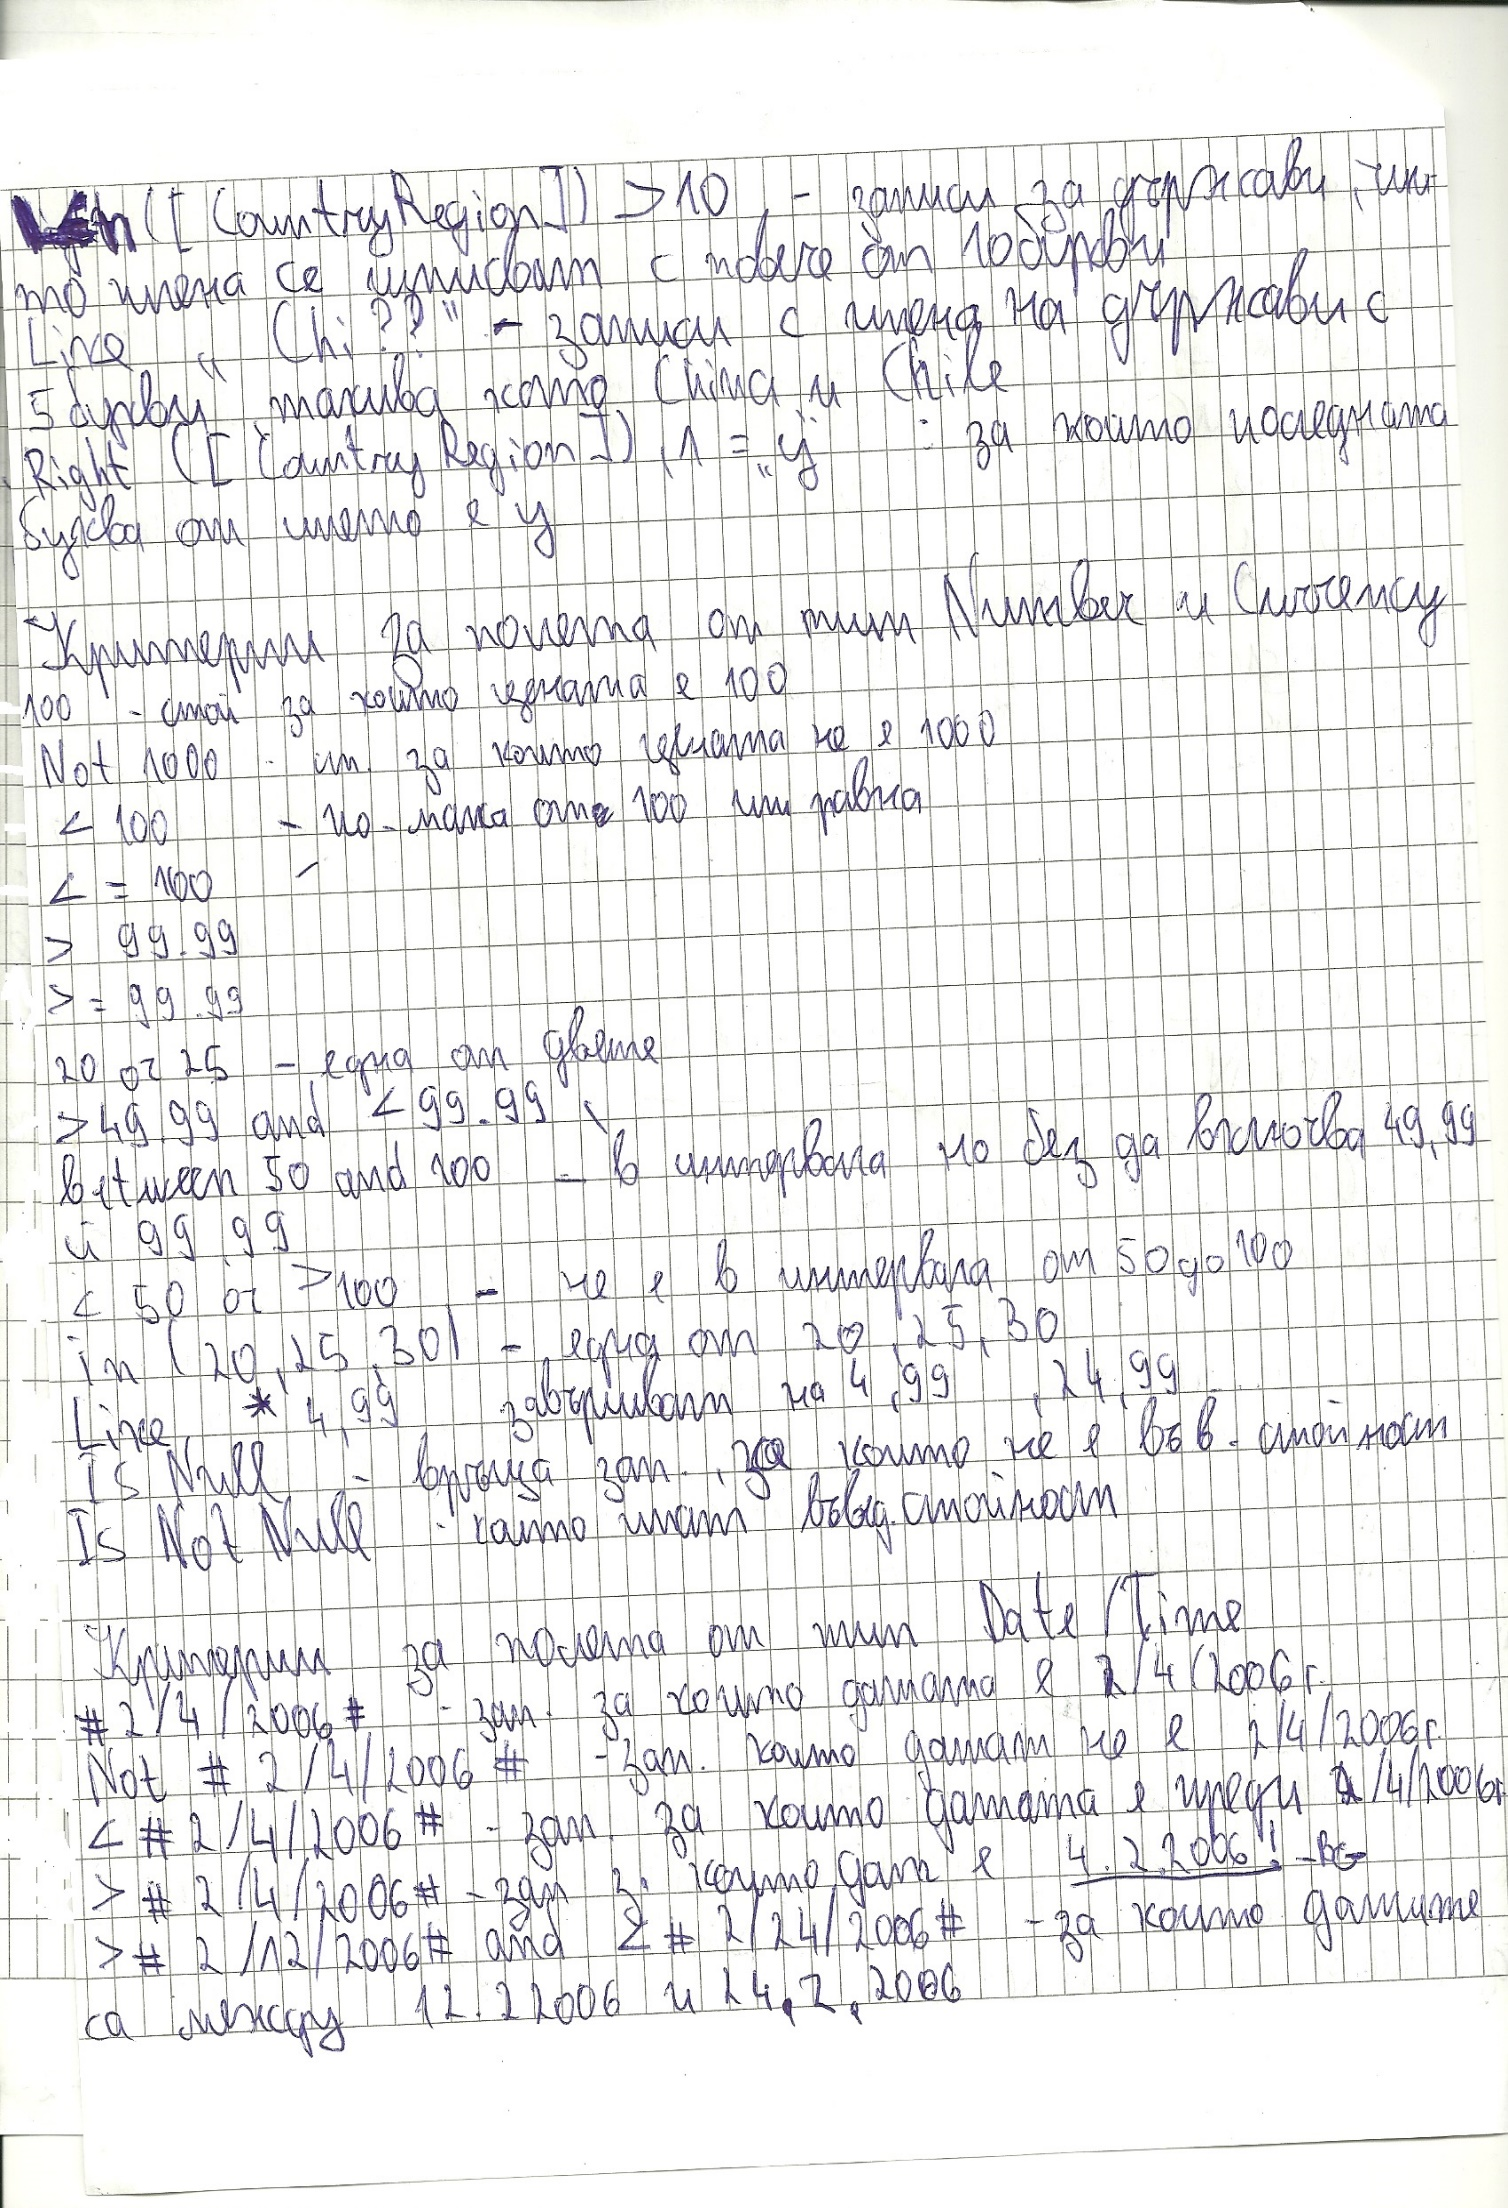 Len([CountryRegion]) >10 - записи за държави, чии-
то имена се изписват с повече от 10 букви
Like "Chi??" - записи с имена на държави с
5 букви, такива като China и Chile
Right ([CountryRegion]),1 = "y" : за които последната
буква от името е y
Критерии за полета от тип Number и Currency
100 - стой за които цената е 100
Not 1000 - за които цената не е 1000
< 100 - по-малка от 100 или равна
< = 100 -
> 99.99
> = 99.99
20 or 25 - една от двете
>49.99 and <99.99
between 50 and 100 - в интервала но без да включва 49,99
и 99,99
< 50 or >100 - не е в интервала от 50 до 100
in (20,25,30) - една от 20, 25, 30
Like * 4,99 завършват на 4,99 ,24,99
Is Null - връща зап., за които не е във в. стойност
Is Not Null - които имат въвед. стойност
Критерии за полета от тип Date/Time
#2/4/2006# - зап. за които датата е 2/4/2006г.
Not #2/4/2006# - зап. които датат не е 2/4/2006г.
< #2/4/2006# - зап. за които датата е преди 2/4/2006г.
> #2/4/2006# - зап з. които дат е 4.2.2006! - BG
> # 2/12/2006# and < # 2/24/2006# - за които датите
са между 12.2 2006 и 24.2.2006